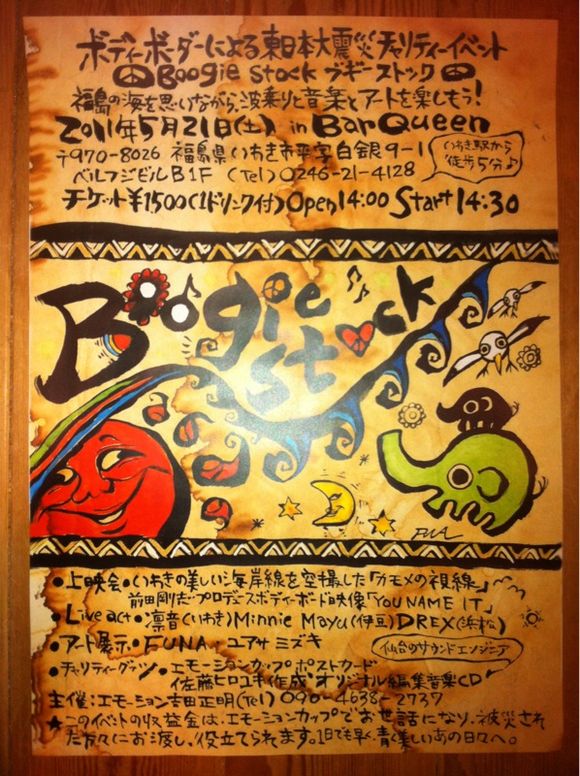 ボディーボーダーによる東日本大震災チャリティーイベント
Boogie Stock ブギーストック
福島の海を思いながら、波乗りと音楽とアートを楽しもう!
2011年5月21日(土) in Bar Queen
〒970-8026 福島県いわき市平字白銀9-1
いわき駅から
徒歩5分♪
ベルフジビルB1F (Tel) 0246-21-4128
チケット¥1500(1ドリンク付) Open 14:00 Start 14:30
Boogie
stock
FUNA
●上映会●いわきの美しい海岸線を空撮した「カモメの視線」
前田剛志プロデュースボディーボード映像「YOU NAME IT」
●Live act●凛音(いわき) Minnie Mayu(伊豆) DREX(浜松)
●アート展示●FUNA、ユアサ ミズキ
仙台のサウンドエンジニア
●チャリティーグッズ●エモーションカップ ポストカード
佐藤ヒロユキ作成●オリジナル編集音楽CD
主催:エモーション吉田正明(Tel) 090-4638-2737
★このイベントの収益金は、エモーションカップでお世話になり、被災され
た方々にお渡し、役立てられます。1日でも早く、青く美しいあの日々へ。